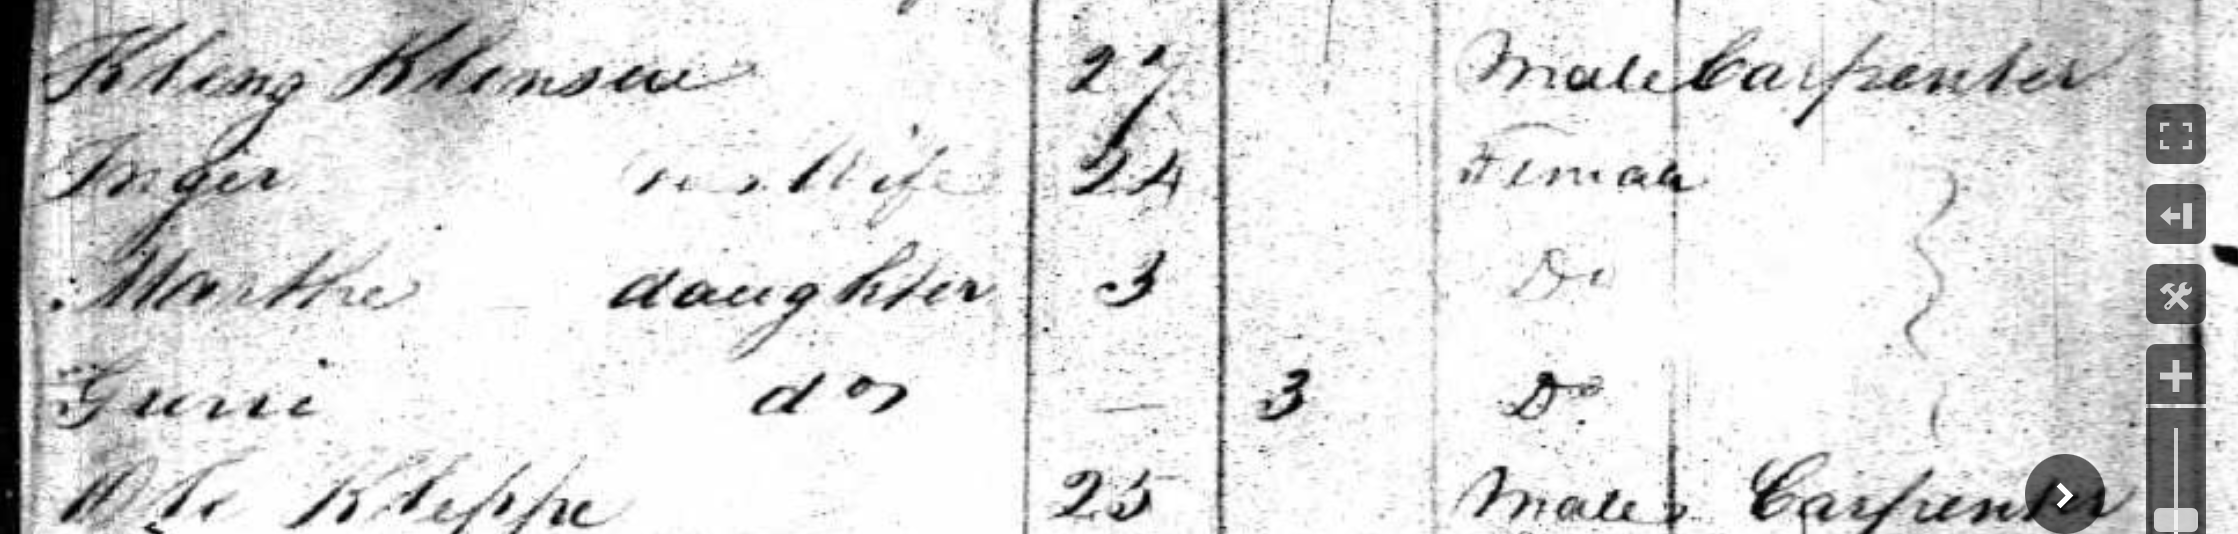 Kleng Klensen 27 Male Carpenter
Inger Wife 24 Female
Marthe daughter 3 Do
Guri do — 3 Do
Ole Kleppe 25 Male Carpenter